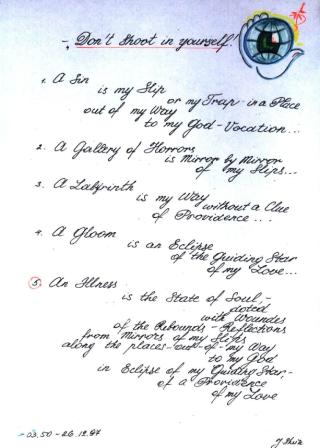 -, Don't Shoot in yourself!
1. A Sin
is my Slip
or my Trap - in a Place
out of my Way
to my God - Vocation...
2. A Gallery of Horrors
is Mirror by Mirror
of my Slips...
3. A Labyrinth
is my Way
without a Clue
of Providence...
4. A Gloom
is an Eclipse
of the Guiding Star
of my Love...
5. An Illness
is the State of Soul,-
doted
with Woundes
of the Rebounds - Reflections
from Mirrors of my Slips
along the places-out-of-my Way
to my God
in Eclipse of my Guiding Star,-
of a Providence
of my Love
-03.50-26.12.97